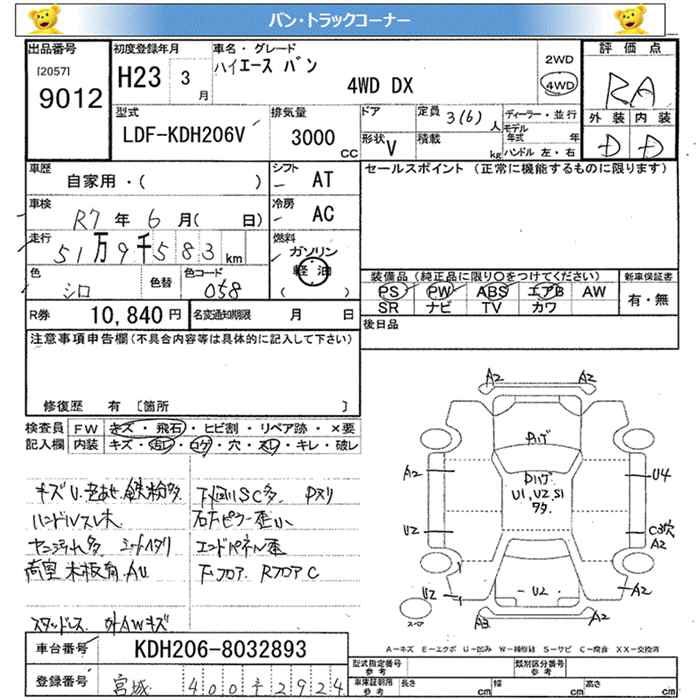 バン・トラックコーナー
出品番号
[2057]
9012
初度登録年月
H23 3 月
車名・グレード
ハイエース バン
4WD DX
2WD
4WD
評価点
RA
外装 内装
D D
型式
LDF-KDH206V
排気量
3000 CC
ドア
形状 V
定員 3(6) 人
積載 kg
ディーラー・並行
モデル年式 年
ハンドル 左・右
車歴
自家用・( )
シフト
AT
車検
R7 年 6 月( 日)
冷房
AC
走行
51万9千583 km
燃料
ガソリン
軽油
( )
色
シロ
色替
色コード
058
R券 10,840 円
名変通知期限 月 日
セールスポイント (正常に機能するものに限ります)
装備品(純正品に限り○をつけてください)
PS PW ABS エアB AW
SR ナビ TV カワ
新車保証書
有・無
後日品
注意事項申告欄(不具合内容等は具体的に記入して下さい)
修復歴 有 〔箇所 〕
検査員記入欄
FW キズ・飛石・ヒビ割・リペア跡・×要
内装 キズ・汚レ・コゲ・穴・スレ・キレ・破レ
下回りSC多
ハンドルスレ大
エンドパネル歪
下フロア RフロアC
スタッドレス 外AWキズ
A2 A2
A2
U2
U2
A3
A2
U4
C3穴
A2
A2
U2
U1,U2,S1
スーマ
A-キズ E-エクボ U-凹み W-補修跡 S-サビ C-腐食 XX-交換済
車台番号
KDH206-8032893
登録番号
宮城 400 そ 2924
型式指定番号 参考
類別区分番号 参考
車庫証明 参考
長さ cm 幅 cm 高さ cm